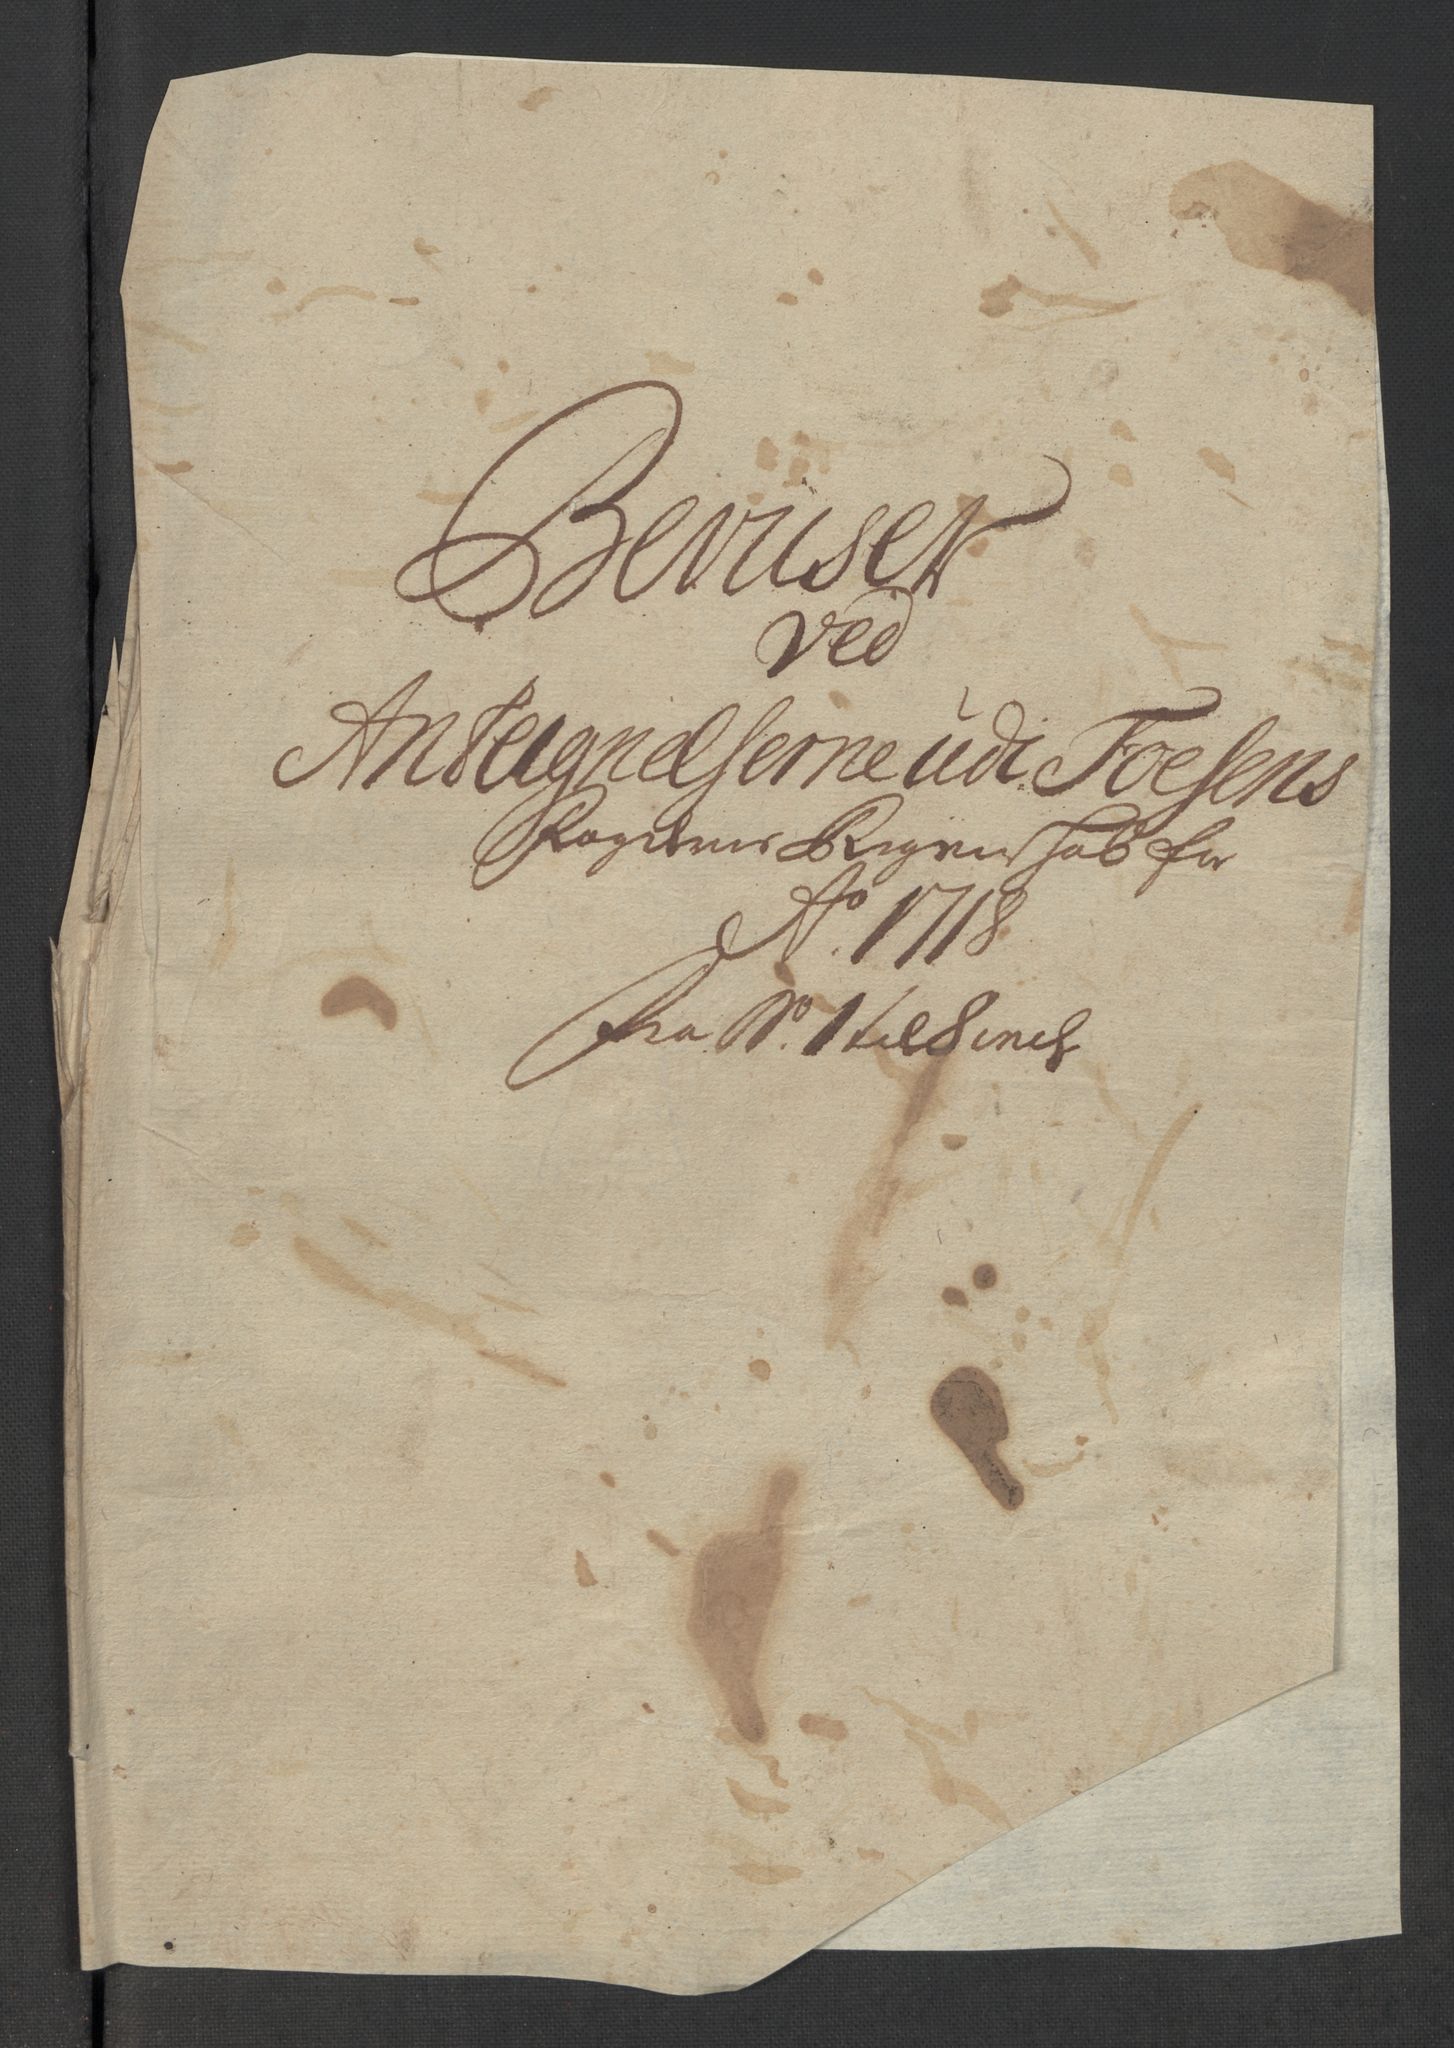 Beviser
ved
Anteignelserne udi Foesens
Fogderies Regenskab for
Ao. 1718
fra No. 1 til 8 incl: